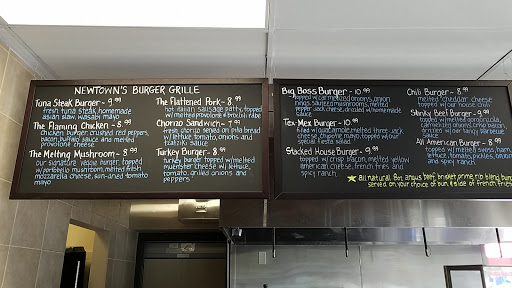 NEWTOWN'S BURGER GRILLE
Tuna Steak Burger - 9.99
fresh tuna steak, homemade
asian slaw, wasabi mayo
The Flaming Chicken - 8.99
chicken burger, crushed red peppers,
bacon, buffalo sauce and melted
provolone cheese
The Melting Mushroom - 8.99
our signature veggie burger, topped
w/portobello mushroom, melted fresh
mozzarella cheese, sun-dried tomato
mayo
The Flattened Pork - 8.99
hot italian sausage patty, topped
w/ melted provolone & broccoli rabe
Chorizo Sandwich - 7.99
fresh chorizo served on pita bread
w/ lettuce, tomato, onions and
tzatziki sauce
Turkey Burger - 8.99
turkey burger topped w/melted
muenster cheese w/ lettuce,
tomato, grilled onions and
peppers
Big Boss Burger - 10.99
topped w/ carmelized onions, onion
rings, sauteed mushrooms, melted
pepper jack cheese, drizzled w/ homemade
sauce
Tex-Mex Burger - 10.99
filled w/ guacamole, melted three jack
cheese, chipotle mayo, topped w/ our
special fiesta salad
Stacked House Burger - 9.99
topped w/ crisp bacon, melted yellow
american cheese, french fries and
spicy ranch
Chili Burger - 8.99
melted cheddar cheese
topped w/ our house chili
Stinky Beef Burger - 9.99
topped w/ melted
onions, crisp bacon
drizzled w/ our tangy barbecue
All American Burger - 8.99
topped w/ melted swiss, ham,
lettuce, tomato, pickles, onion
and spicy ranch
★ all natural 8oz angus beef brisket prime rib blend burgers
served on your choice of bun & side of french fries